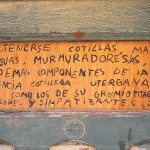 TENERSE COTILLAS, MA
GUAS, MURMURADORESAS,
DEMAS COMPONENTES DE LA
ENCIA COTILLERA, UTERGANA
COMO LOS DE SU GREMIO
Y SIMPATIZANTES